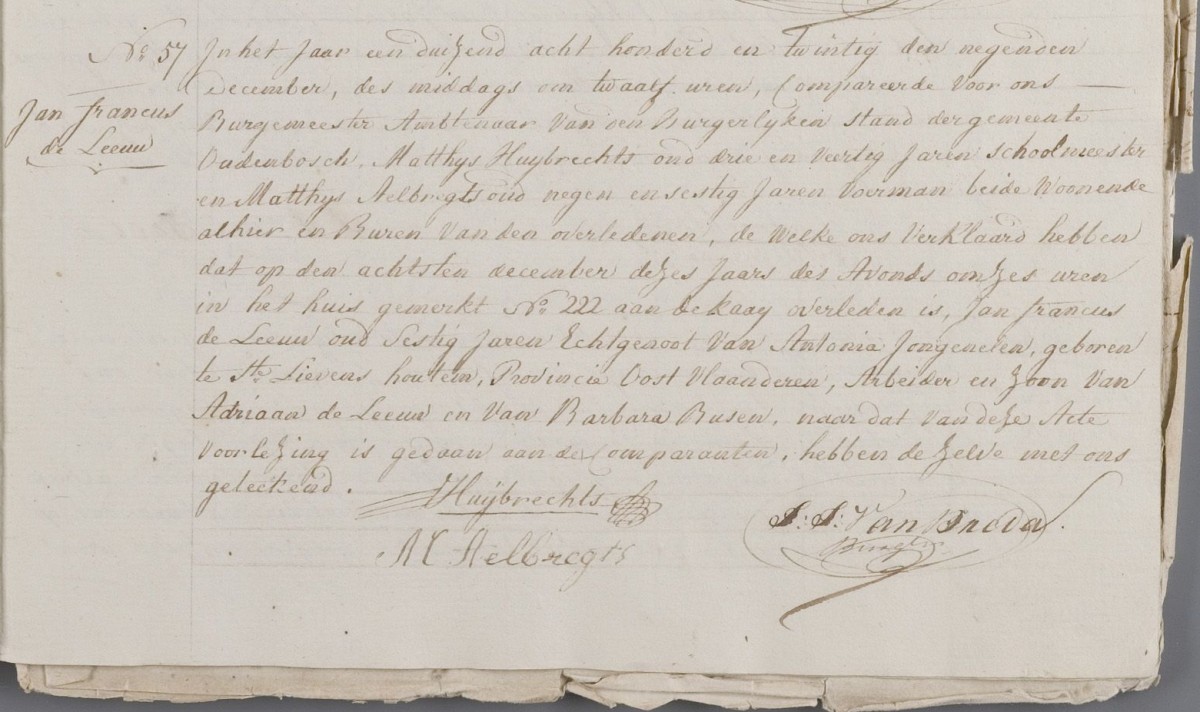 No 57
Jan francus
de Leeuw
In het Jaar een duizend acht honderd en twintig den negenden
December, des middags om twaalf uren, Compareerde voor ons
Burgemeester Ambtenaar van den Burgerlyken stand der gemeente
Oudenbosch, Matthys Huybrechts oud drie en veertig Jaren schoolmeester
en Matthys Aelbregts oud negen en sestig Jaren voerman beide woonende
alhier en Buren van den overledenen, de welke ons verklaard hebben
dat op den achtsten december dezes Jaars des Avonds om zes uren
in het huis gemerkt No 222 aan de kaay overleden is, Jan francus
de Leeuw oud Sestig Jaren Echtgenoot van Antonia Jongenelen, geboren
te Ste Lievens houtem, Provincie Oost Vlaanderen, Arbeider en Zoon van
Adriaan de Leeuw en van Barbara Busen, naar dat van deze Acte
voorlezing is gedaan aan de Comparanten, hebben de zelve met ons
geteekend.
Huijbrechts
M Aelbregts
J: J: Van Breda